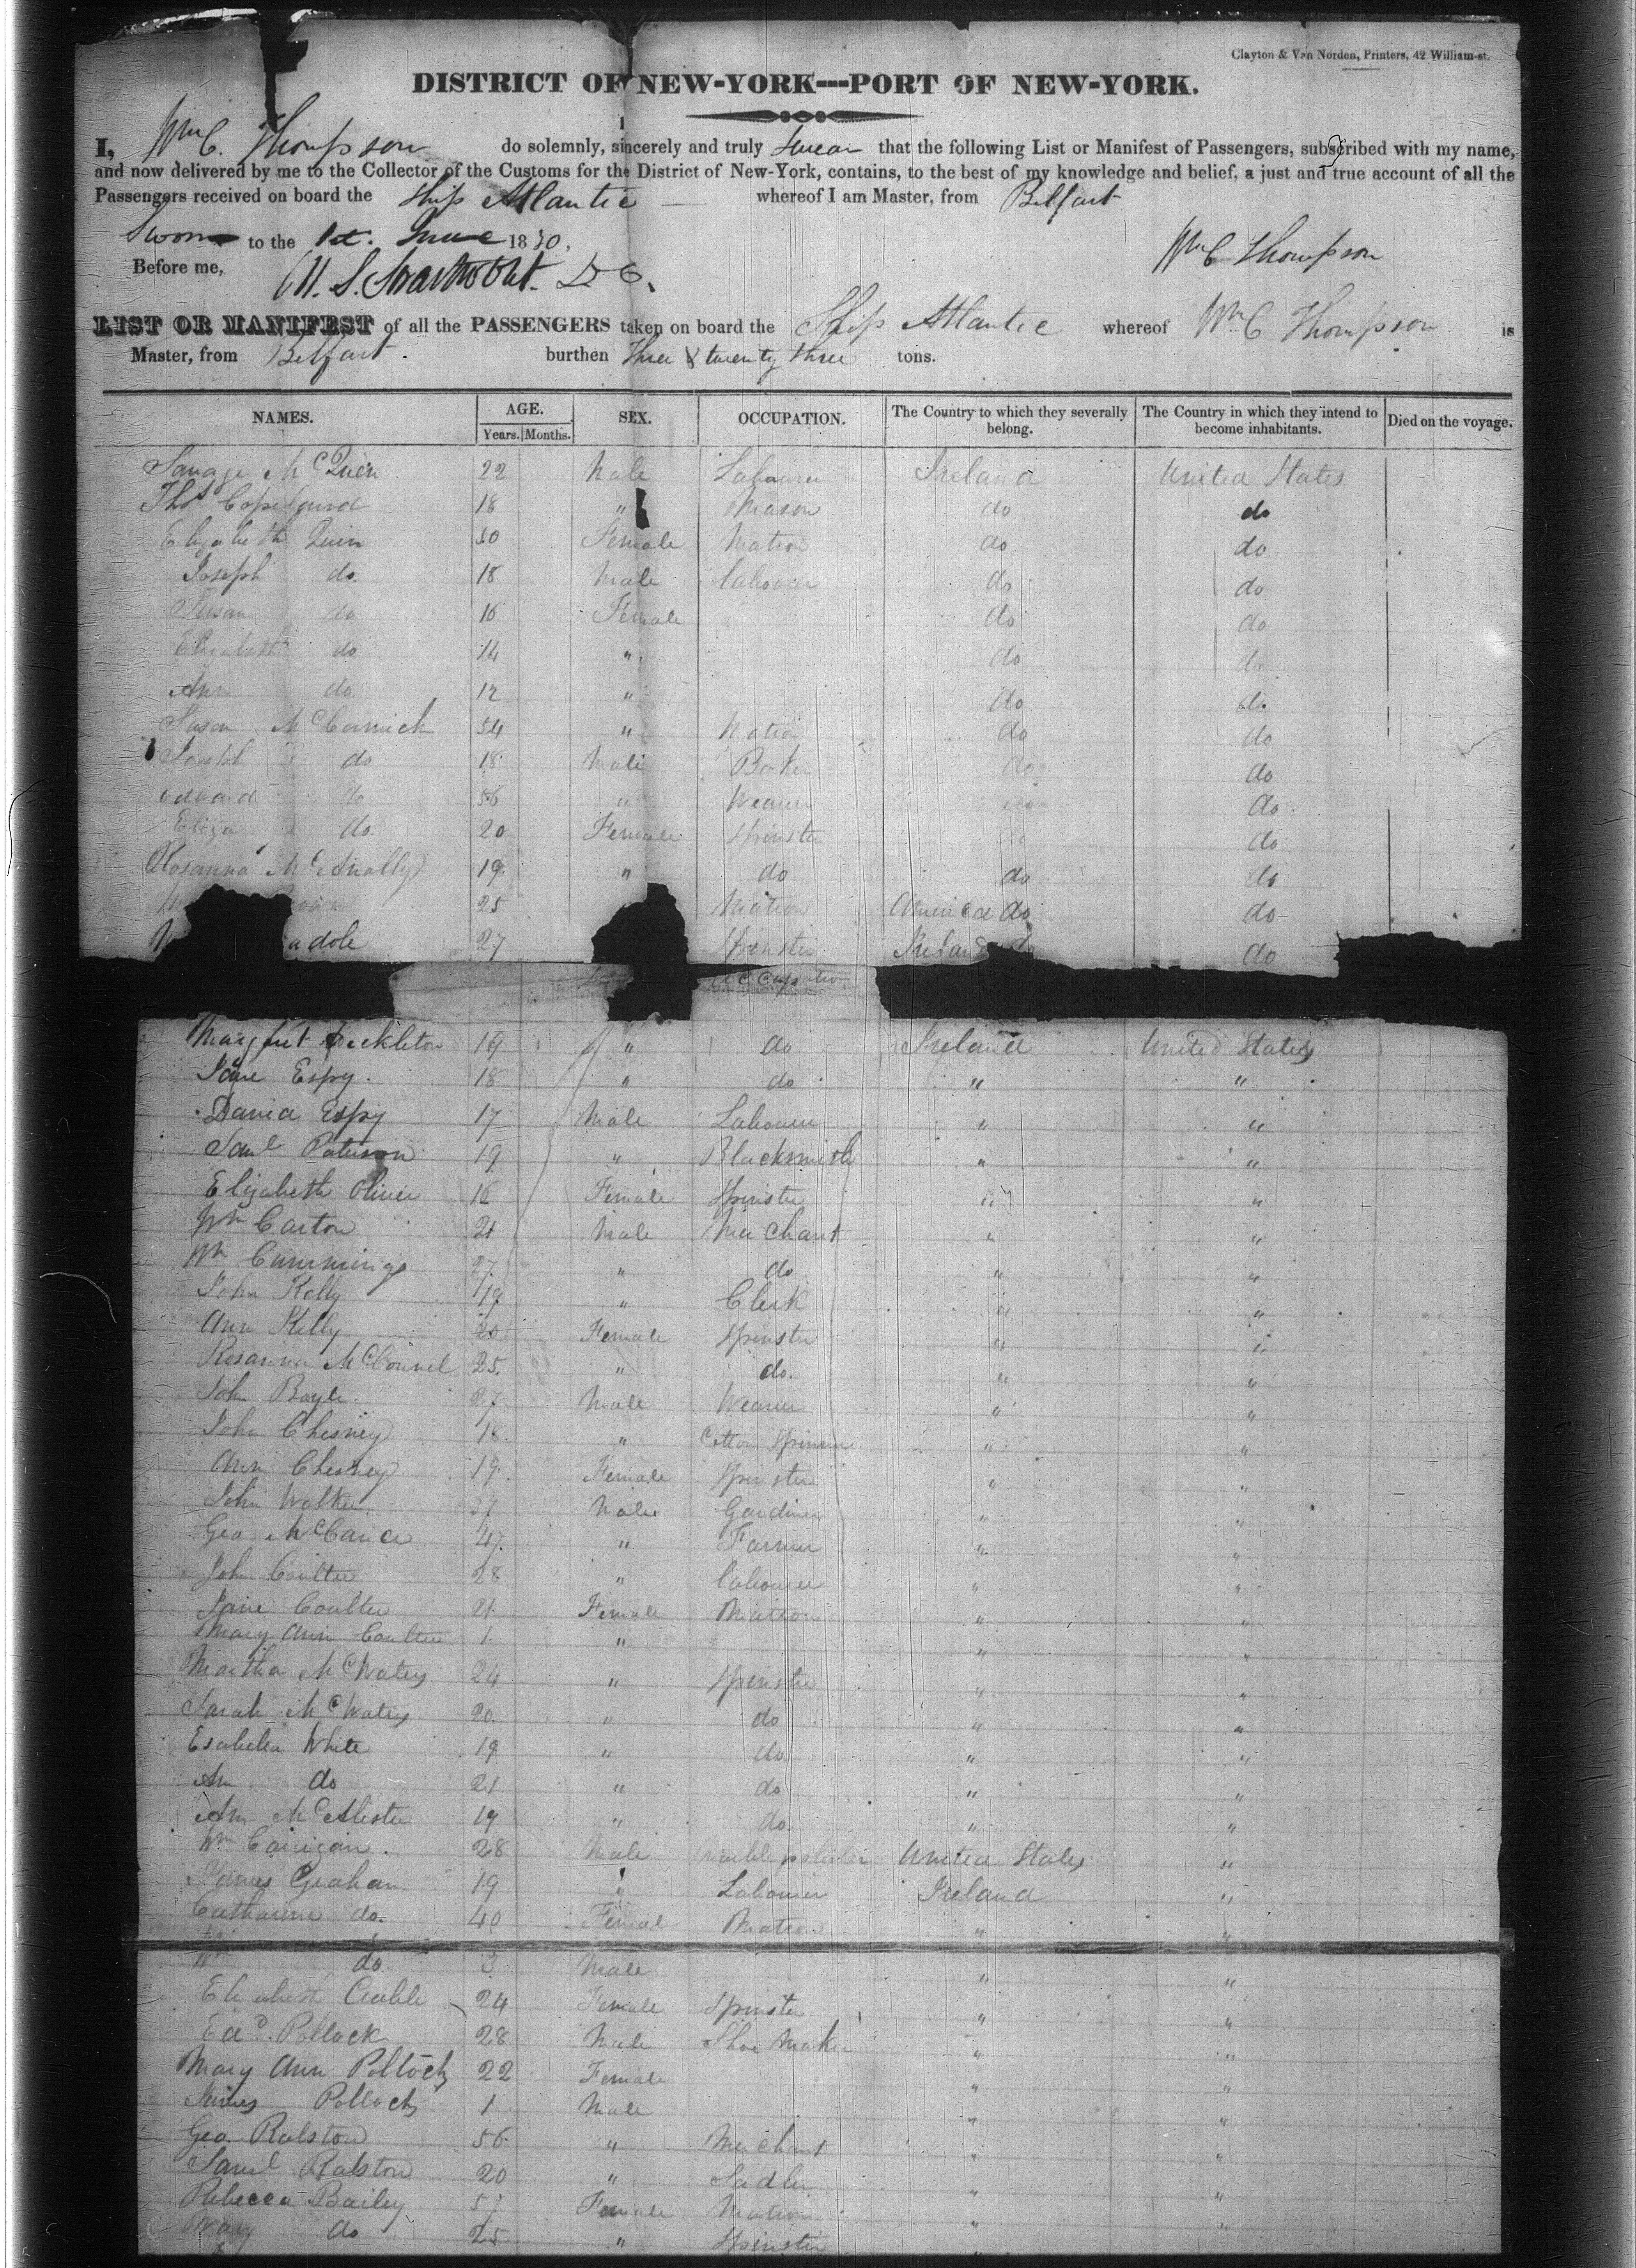 Clayton & Van Norden, Printers, 42 William-st.
DISTRICT OF NEW-YORK---PORT OF NEW-YORK.
I, Wm C. Thompson do solemnly, sincerely and truly swear that the following List or Manifest of Passengers, subscribed with my name,
and now delivered by me to the Collector of the Customs for the District of New-York, contains, to the best of my knowledge and belief, a just and true account of all the
Passengers received on board the Ship Atlantic whereof I am Master, from Belfast
Sworn to the 1st. June 1830.
Wm C Thompson
Before me, M. S. Swartwout. D C.
LIST OR MANIFEST of all the PASSENGERS taken on board the Ship Atlantic whereof Wm C Thompson is
Master, from Belfast. burthen Three & twenty three tons.
NAMES. AGE. Years. Months. SEX. OCCUPATION. The Country to which they severally belong. The Country in which they intend to become inhabitants. Died on the voyage.
Savage McQuin 22 Male Labourer Ireland United States
Thos 18 " Mason do do
Elizabeth Quin 50 Female Matron do do
Joseph do. 18 Male Labourer do do
Susan do 16 Female do do
Elizabeth do 14 " do do
Ann do 12 " do do
Susan McCormick 54 " Matron do do
Joseph do 18 Male Baker do do
Edward do 56 " Weaver do do
Eliza do. 20 Female Spinster do do
Rosanna McAnally 19 " do do do
25 Matron America do do
adole 27 Spinster Ireland do do
Occupation
Margret Heckleton 19 " do Ireland United States
Jane Espy. 18 " do " "
David Espy 17 Male Labourer " "
Saml Paterson 19 " Blacksmith " "
Elizabeth Oliver 16 Female Spinster " "
Wm Carton 21 Male Merchant " "
Wm Cummings 27 " do " "
John Kelly 19 " Clerk " "
Ann Kelly 20 Female Spinster " "
Rosanna McConnel 25. " do. " "
John Boyle. 27 Male Weaver " "
John Chesney 18. " Cotton Spinner " "
Ann Chesney 19. Female Spinster " "
John Walker 27 Male Gardiner " "
Geo McCance 47. " Farmer " "
John Coulter 28 " Labourer " "
Jane Coulter 21. Female Matron " "
Mary Ann Coulter 1. " " "
Martha McWaters 24 " Spinster " "
Sarah McWaters 20. " do " "
Esabella White 19 " do " "
Ann do 21 " do " "
Ann McAlister 19 " do. " "
Wm Carrigan. 28 Male Marble polisher United States "
James Graham 19 " Labourer Ireland "
Catharine do. 40 Female Matron " "
Wm do. 3 Male " "
Elizabeth Ceable 24 Female Spinster " "
Edd. Pollock 28 Male Shoe Maker " "
Mary Ann Pollock 22 Female " "
James Pollock 1 Male " "
Geo. Ralston 56 " Merchant " "
Saml Ralston 20 " Sadler " "
Rebecca Bailey 57 Female Matron " "
Mary do 25 " Spinster